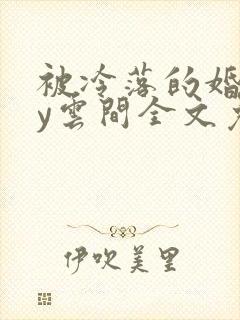 被冷落的婚
y雲間全文
伊吹美里